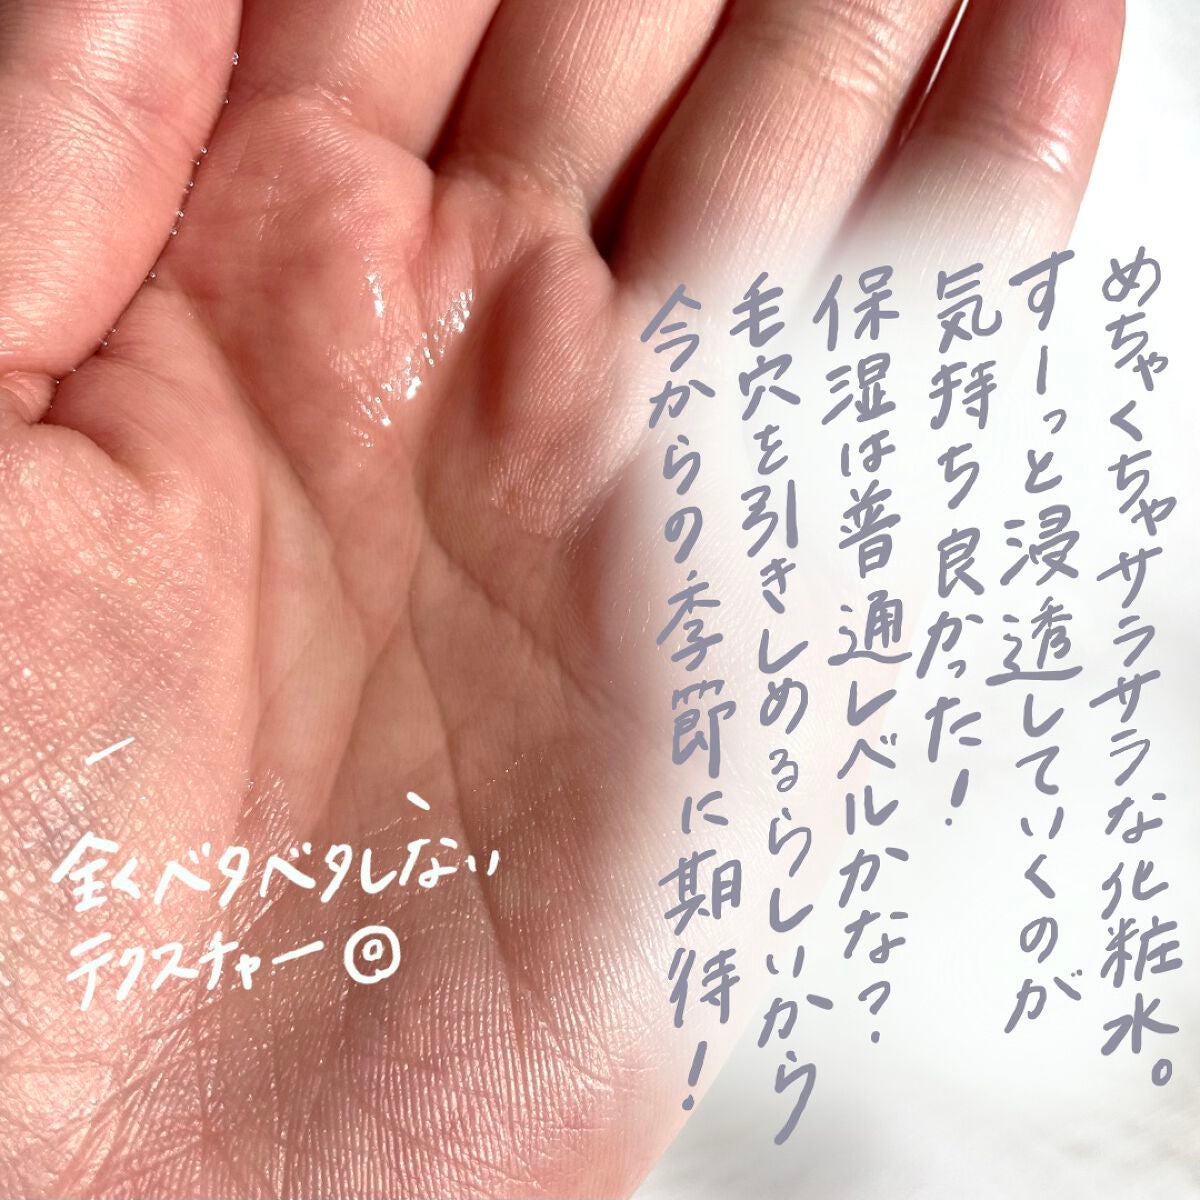 めちゃくちゃサラサラな化粧水。
すーっと浸透していくのが
気持ち良かった！
保湿は普通レベルかな？
毛穴を引きしめるらしいから
今からの季節に期待！
全くベタベタしない
テクスチャー◎